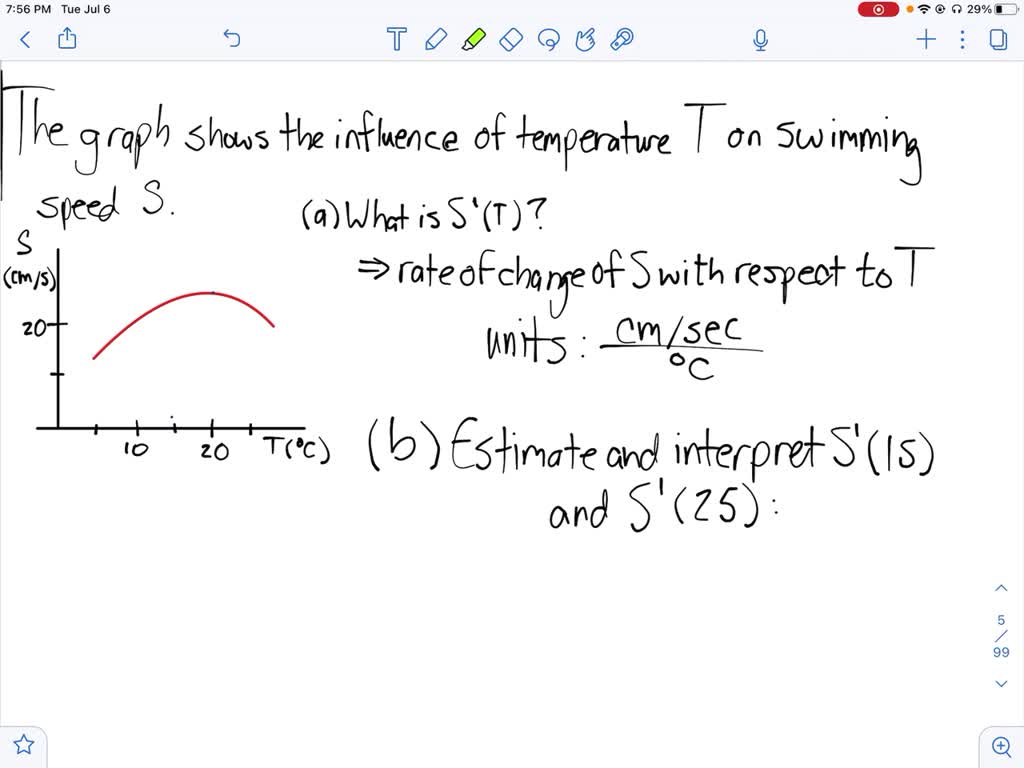 7:56 PM Tue Jul 6
29%
The graph shows the influence of temperature T on swimming
speed S.
(a) What is S'(T)?
⇒ rate of change of S with respect to T
units: cm/sec
°C
S
(cm/s)
20
10
20
T(°C)
(b) Estimate and interpret S'(15)
and S'(25):
5
/
99